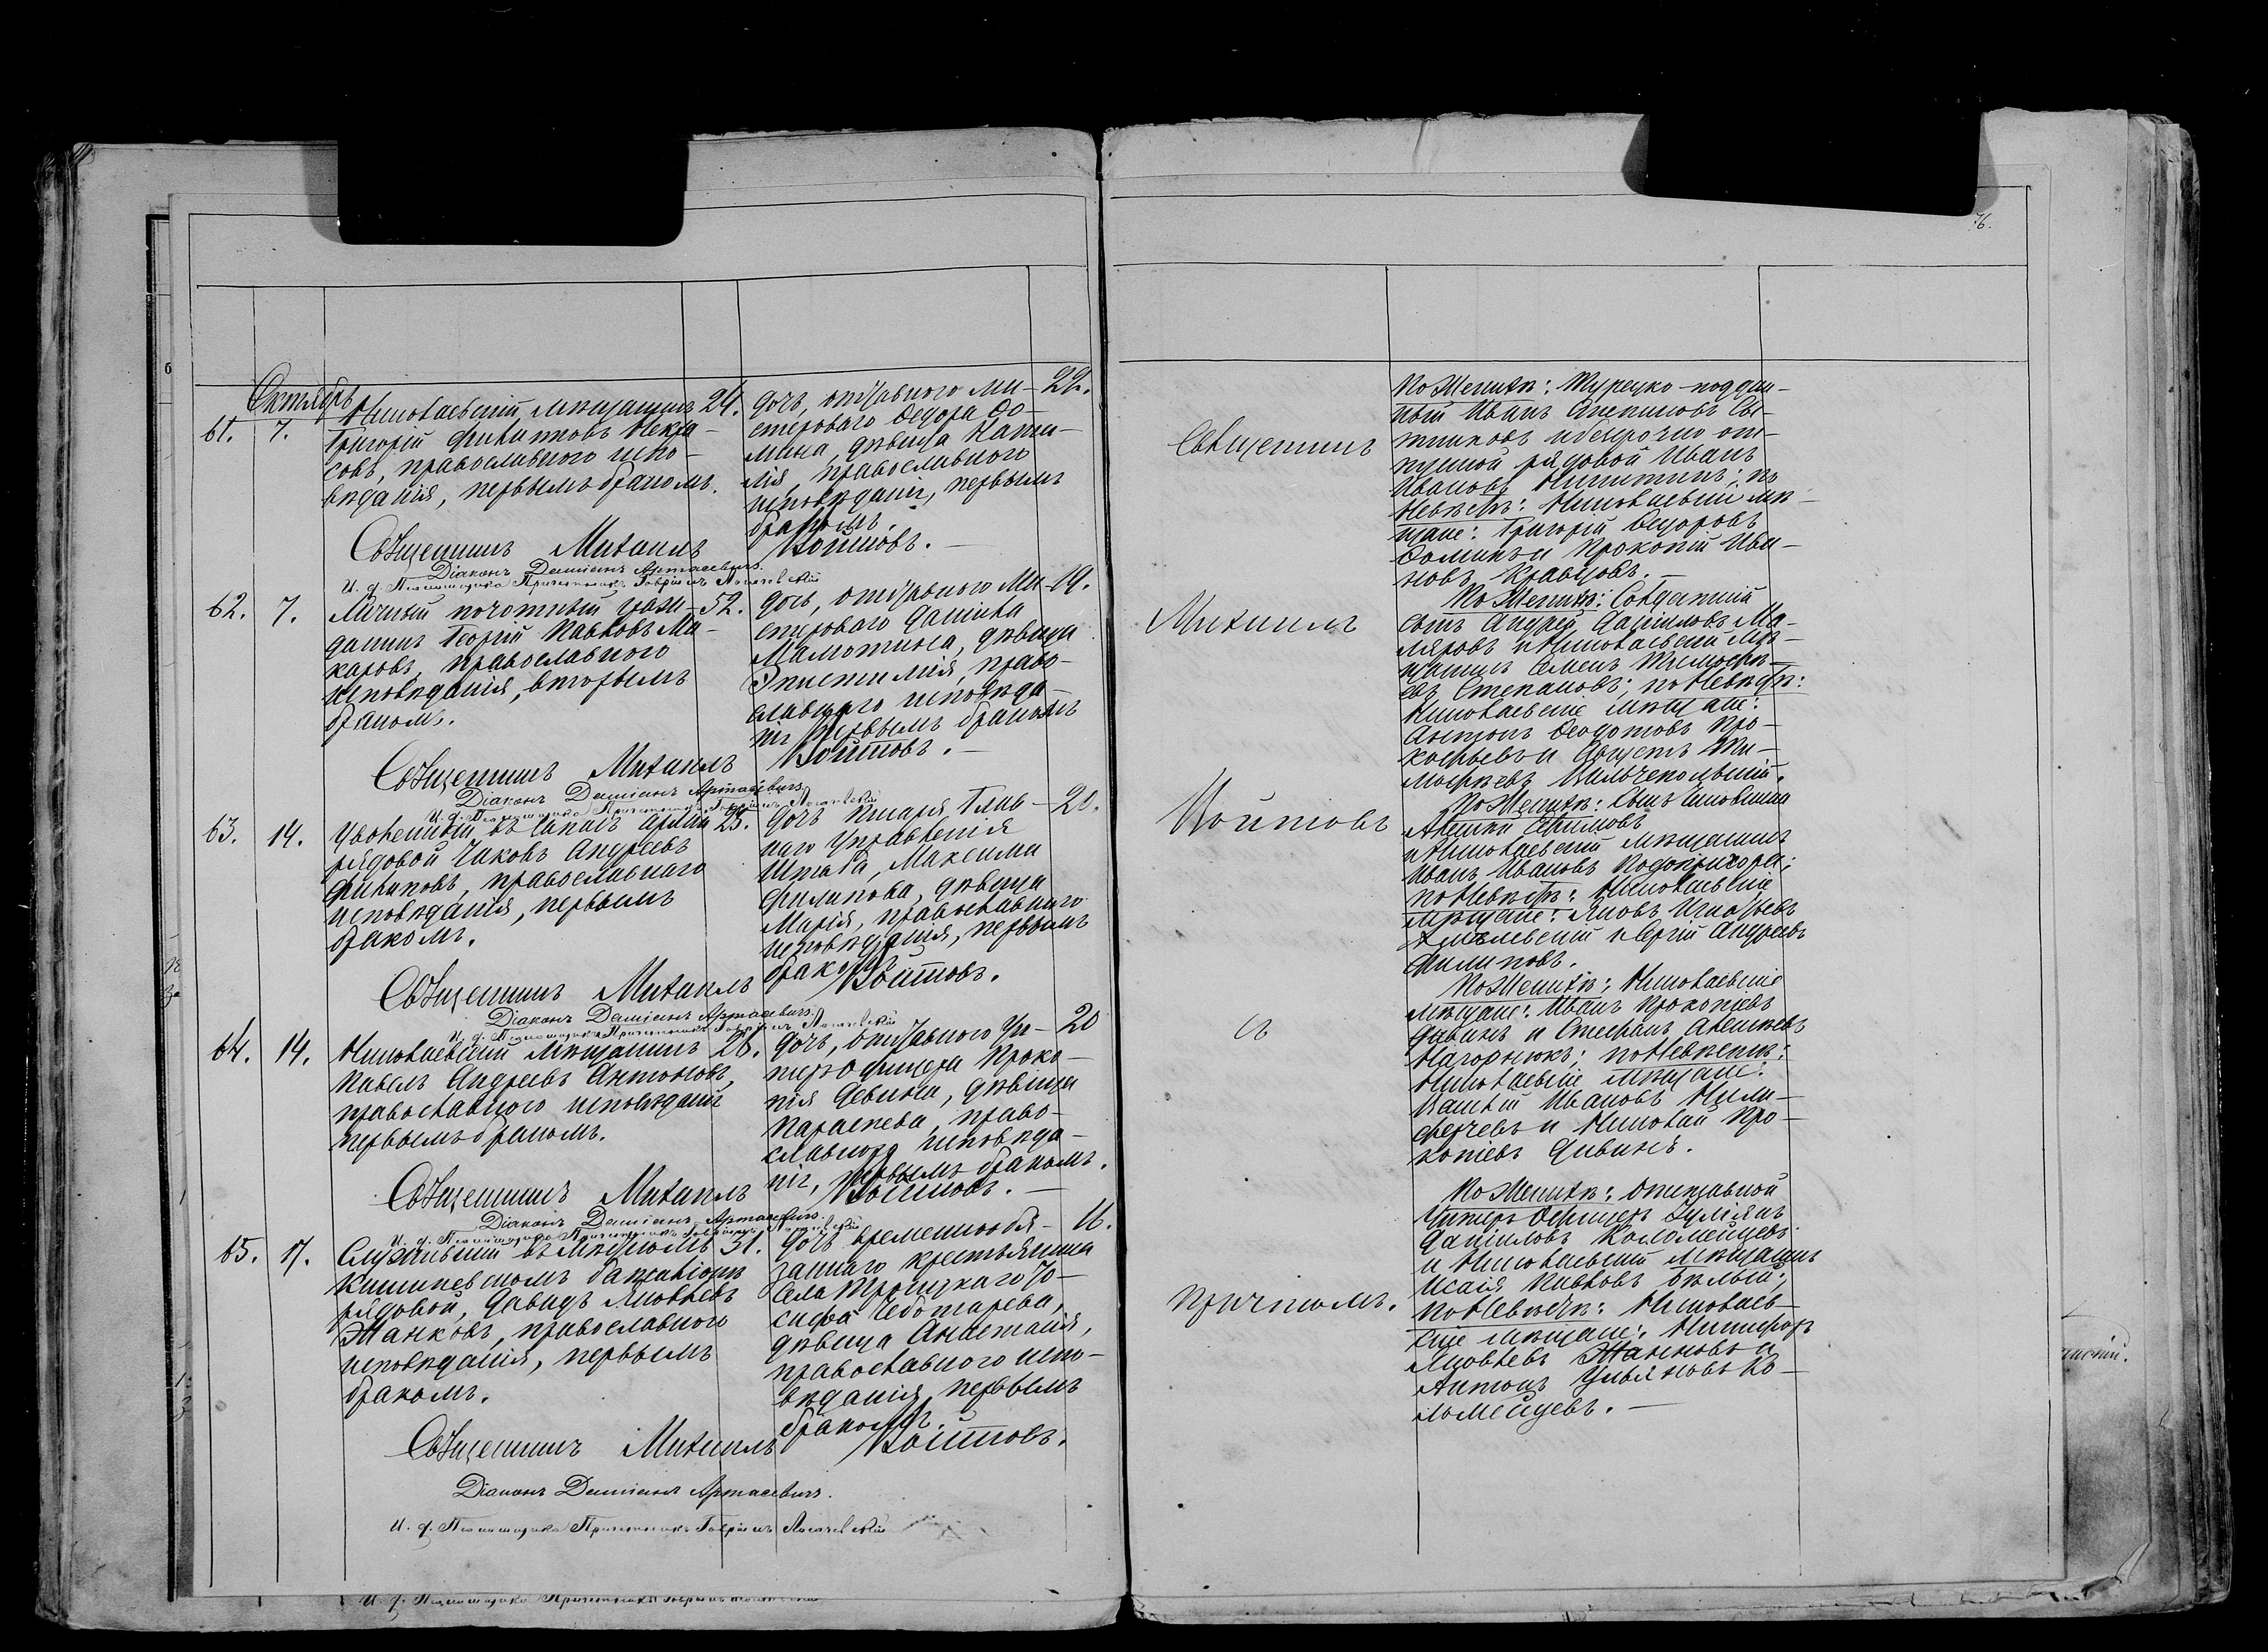 76.
Октябрь
61. 7. Николаевскій мѣщанинъ 24.
Григорій Филиповъ Некра-
совъ, православного испо-
вѣданія, первымъ бракомъ.
дочь, отставного ма- 22.
стероваго Федора Фо-
мина, дѣвица Ната-
лія, православного
исповѣданія, первымъ
бракомъ.
Священникъ Михаилъ Войтовъ.
Діаконъ Даміанъ Артасевичъ.
И. д. Псаломщика Причетникъ Гавріилъ
62. 7. Личный почотный граж- 52.
данинъ Георгій Павловъ Ма-
каровъ, православного
исповѣданія, вторымъ
бракомъ.
дочь, отставного Ма- 19.
стероваго Данила
Мамотина, дѣвица
Эпистимія, право-
славного исповѣда-
нія первымъ бракомъ
Священникъ Михаилъ Войтовъ.
Діаконъ Даміанъ Артасевичъ.
И. д. Псаломщика Причетникъ Гавріилъ
63. 14. Уволенный въ запасъ арміи 25.
рядовой Іаковъ Андреевъ
Филиповъ, православнаго
исповѣданія, первымъ
бракомъ.
дочь писаря Глав- 20.
наго Управленія
Штаба, Максима
Филипова, дѣвица
Марія, православнаго
исповѣданія, первымъ
бракомъ
Священникъ Михаилъ Войтовъ.
Діаконъ Даміанъ Артасевичъ.
И. д. Псаломщика Причетникъ Гавріилъ
64. 14. Николаевскій мѣщанинъ 26.
Павелъ Андреевъ Антоновъ,
православного исповѣданія
первымъ бракомъ.
дочь, отставного Ун- 20
теръ офицера Проко-
пія Девина, дѣвица
Параскева, право-
славного исповѣда-
нія, первымъ бракомъ.
Священникъ Михаилъ Войтовъ.
Діаконъ Даміанъ Артасевичъ.
И. д. Псаломщика Причетникъ Гавріилъ
65. 17. Служившій въ мѣстномъ 31.
Кишиневскомъ баталіонѣ
рядовой, Давидъ Яковлевъ
Жанковъ, православного
исповѣданія, первымъ
бракомъ.
дочь временнообя- 16.
заннаго крестьянина
села Троицкаго Іо-
сифа Чеботарева,
дѣвица Анастасія,
православного испо-
вѣданія, первымъ
бракомъ.
Священникъ Михаилъ Войтовъ.
Діаконъ Даміанъ Артасевичъ.
И. д. Псаломщика Причетникъ Гавріилъ
Священникъ
Михаилъ
Войтовъ
съ
причтомъ.
По Женихѣ: Турецко-поддан-
ный Иванъ
и безсрочно от-
пускной рядовой Иванъ
Ивановъ Никитинъ; по
Невѣстѣ: Николаевскіе мѣ-
щане: Григорій Федоровъ
Фоминъ и Прокопій Ива-
новъ Кравцовъ.
По Женихѣ: Солдатскій
сынъ Андрей Даніиловъ Ма-
ляровъ и Николаевскій мѣ-
щанинъ Семенъ Тимофѣ-
евъ Степановъ; по Невѣстѣ:
Николаевскіе мѣщане:
Антонъ Феодотовъ Про-
кофьевъ и Августъ Ти-
мофѣевъ
По Женихѣ: Сынъ Чиновника
Алексѣй Ефимовъ
и Николаевскій мѣщанинъ
Иванъ Ивановъ
по Невѣстѣ: Николаевскіе
мѣщане: Яковъ Игнатьевъ
и Сергій Андреевъ
Филиповъ.
По Женихѣ: Николаевскіе
мѣщане: Иванъ Прокопіевъ
Дивинъ и Стефанъ Алексѣевъ
Нагорнюкъ; по Невѣстѣ:
Николаевскіе мѣщане:
Василій Ивановъ
и Николай Про-
копіевъ Дивинъ.
По Женихѣ: Отставной
Унтеръ Офицеръ Іуліянъ
Даніиловъ Коломейцевъ
и Николаевскій мѣщанинъ
Исаія Павловъ Бѣлый;
по Невѣстѣ: Николаев-
скіе мѣщане: Никифоръ
Яковлевъ Жанковъ и
Антонъ Ульяновъ Ко-
ломейцевъ.